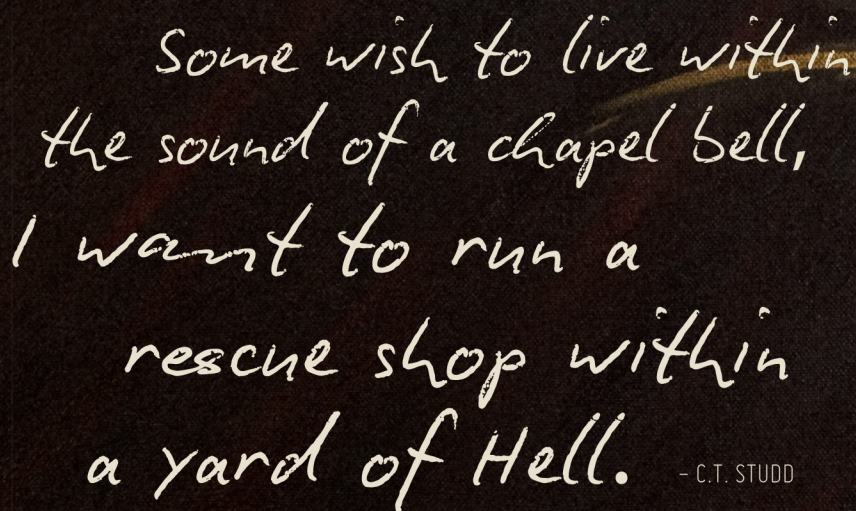 Some wish to live within
the sound of a chapel bell,
I want to run a
rescue shop within
a yard of Hell. – C.T. STUDD